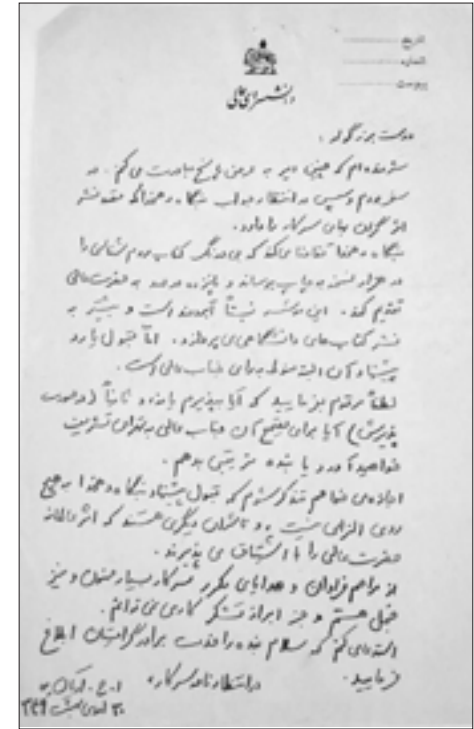 تاریخ
شماره
پیوست
دانشسرای عالی
دوست بزرگوار،
شرمنده‌ام که چنین دیر به عرض پاسخ مبادرت می‌کنم. در
سفر بودم و سپس در انتظار جواب بنگاه دهخدا که قصد نشر
اثر گران بهای سرکار را دارد.
بنگاه دهخدا تقاضا می‌کند که بی‌درنگ کتاب مردم‌شناسی را
در هزار نسخه به چاپ برساند و پانزده درصد به حضرت‌عالی
تقدیم کند. این مؤسسه نسبتاً آبرومند است و بیشتر به
نشر کتاب‌های دانشگاهی می‌پردازد. اما قبول یا رد
پیشنهاد آن البته منوط به رای جناب عالی است.
لطفاً مرقوم بفرمایید که آیا بپذیرم یا نه و ثانیاً (در صورت
پذیرش) آیا برای تصحیح آن جناب عالی به تهران تشریف
خواهید آورد یا بنده ترتیبی بدهم.
اجازه می‌خواهم متذکر شوم که قبول پیشنهاد بنگاه دهخدا به هیچ
روی الزامی نیست و ناشران دیگری هستند که اثر عالمانه
حضرت عالی را با اشتیاق می‌پذیرند.
از مراحم فراوان و هدایای مکرر سرکار بسیار ممنون و نیز
خجل هستم و جز ابراز تشکر کاری نمی‌توانم.
استدعا می‌کنم که سلام بنده را خدمت برادر گرامیتان ابلاغ
فرمایید.
در انتظار نامه سرکار، ا.ح. آریان‌پور
۳۰ اردیبهشت ۳۴۹